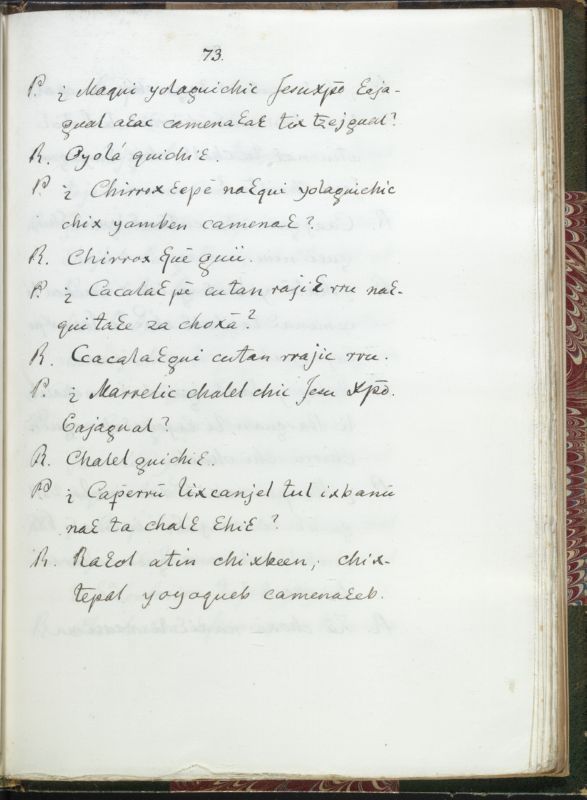 73.
P. ¿ Maqui yolaguichic Jesuxpõ Ɛaja-
gual aƐac camenaƐaƐ tix tzejgual?
R. Oyolá guichiƐ.
P. ¿ Chirrox Ɛepe naƐqui yolaguichic
chix yamben camenaƐ?
R. Chirrox Ɛuē guïï.
P. ¿ CacalaƐ pē cutan rajiƐ rru naƐ-
qui taƐe za choxā?
R. CcacalaƐqui cutan rrajic rru.
P. ¿ Marrelic chalel chic Jesu Xpõ.
Ɛajagual?
R. Chalel guichiƐ.
P. ¿ Caperrū lixcanjel tul ixbanū
naƐ ta chalƐ ƐhiƐ?
R. RaƐol atin chixbeen, chix-
tzepal yoyoqueb camenaƐeb.